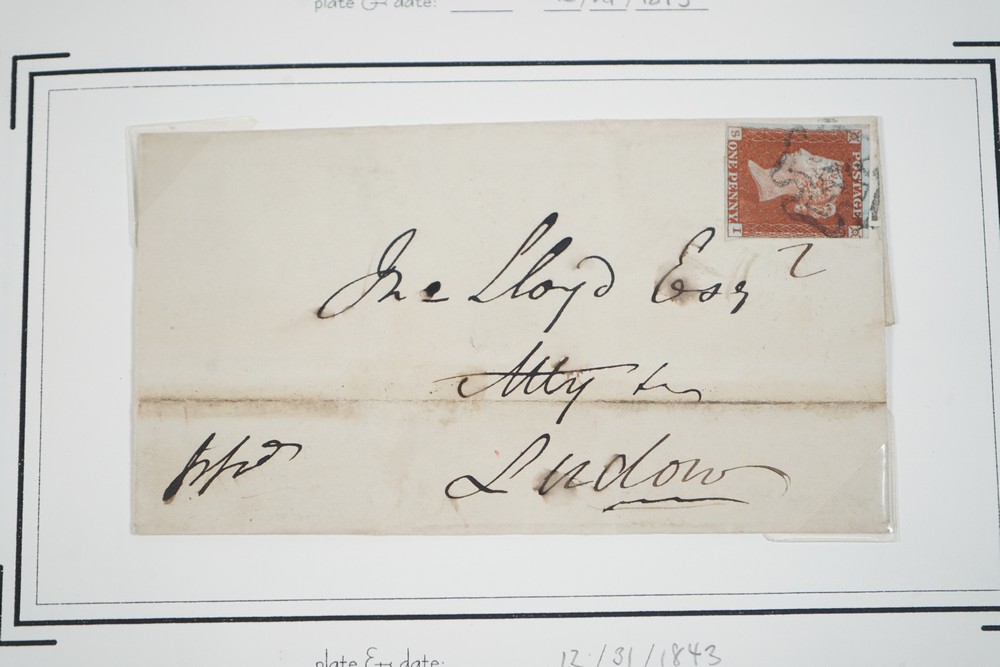 plate & date: 12/29/1843
POSTAGE
S ONE PENNY I
Jno Lloyd Esqr
Atty &c
Ludlow
ppd
plate & date: 12/31/1843